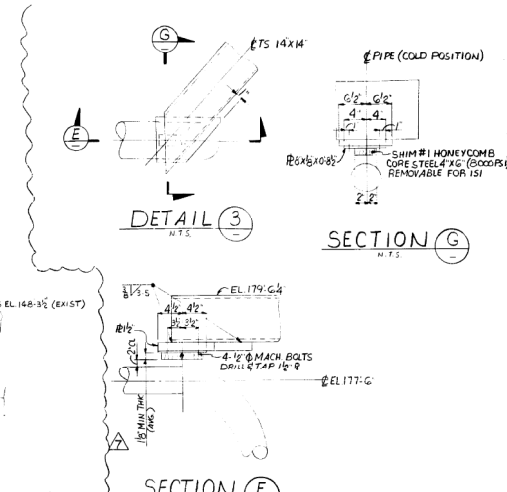 G
℄ TS 14"X14"
E
DETAIL 3
N.T.S.
℄ PIPE (COLD POSITION)
6½" 6½"
4" 4"
1" 1"
SHIM #1 HONEYCOMB
CORE STEEL 4"X6" (8000PSI)
REMOVABLE FOR ISI
2" 2"
SECTION G
N.T.S.
EL.148-3½ (EXIST)
3-5
EL.179'-6¼"
4½" 4½"
3½" 3½"
℞ 1½"
2"CL
4-½"Φ MACH. BOLTS
DRILL & TAP 1½"
℄ EL177'-6"
1/8" MIN THK
(AVG.)
7
SECTION E